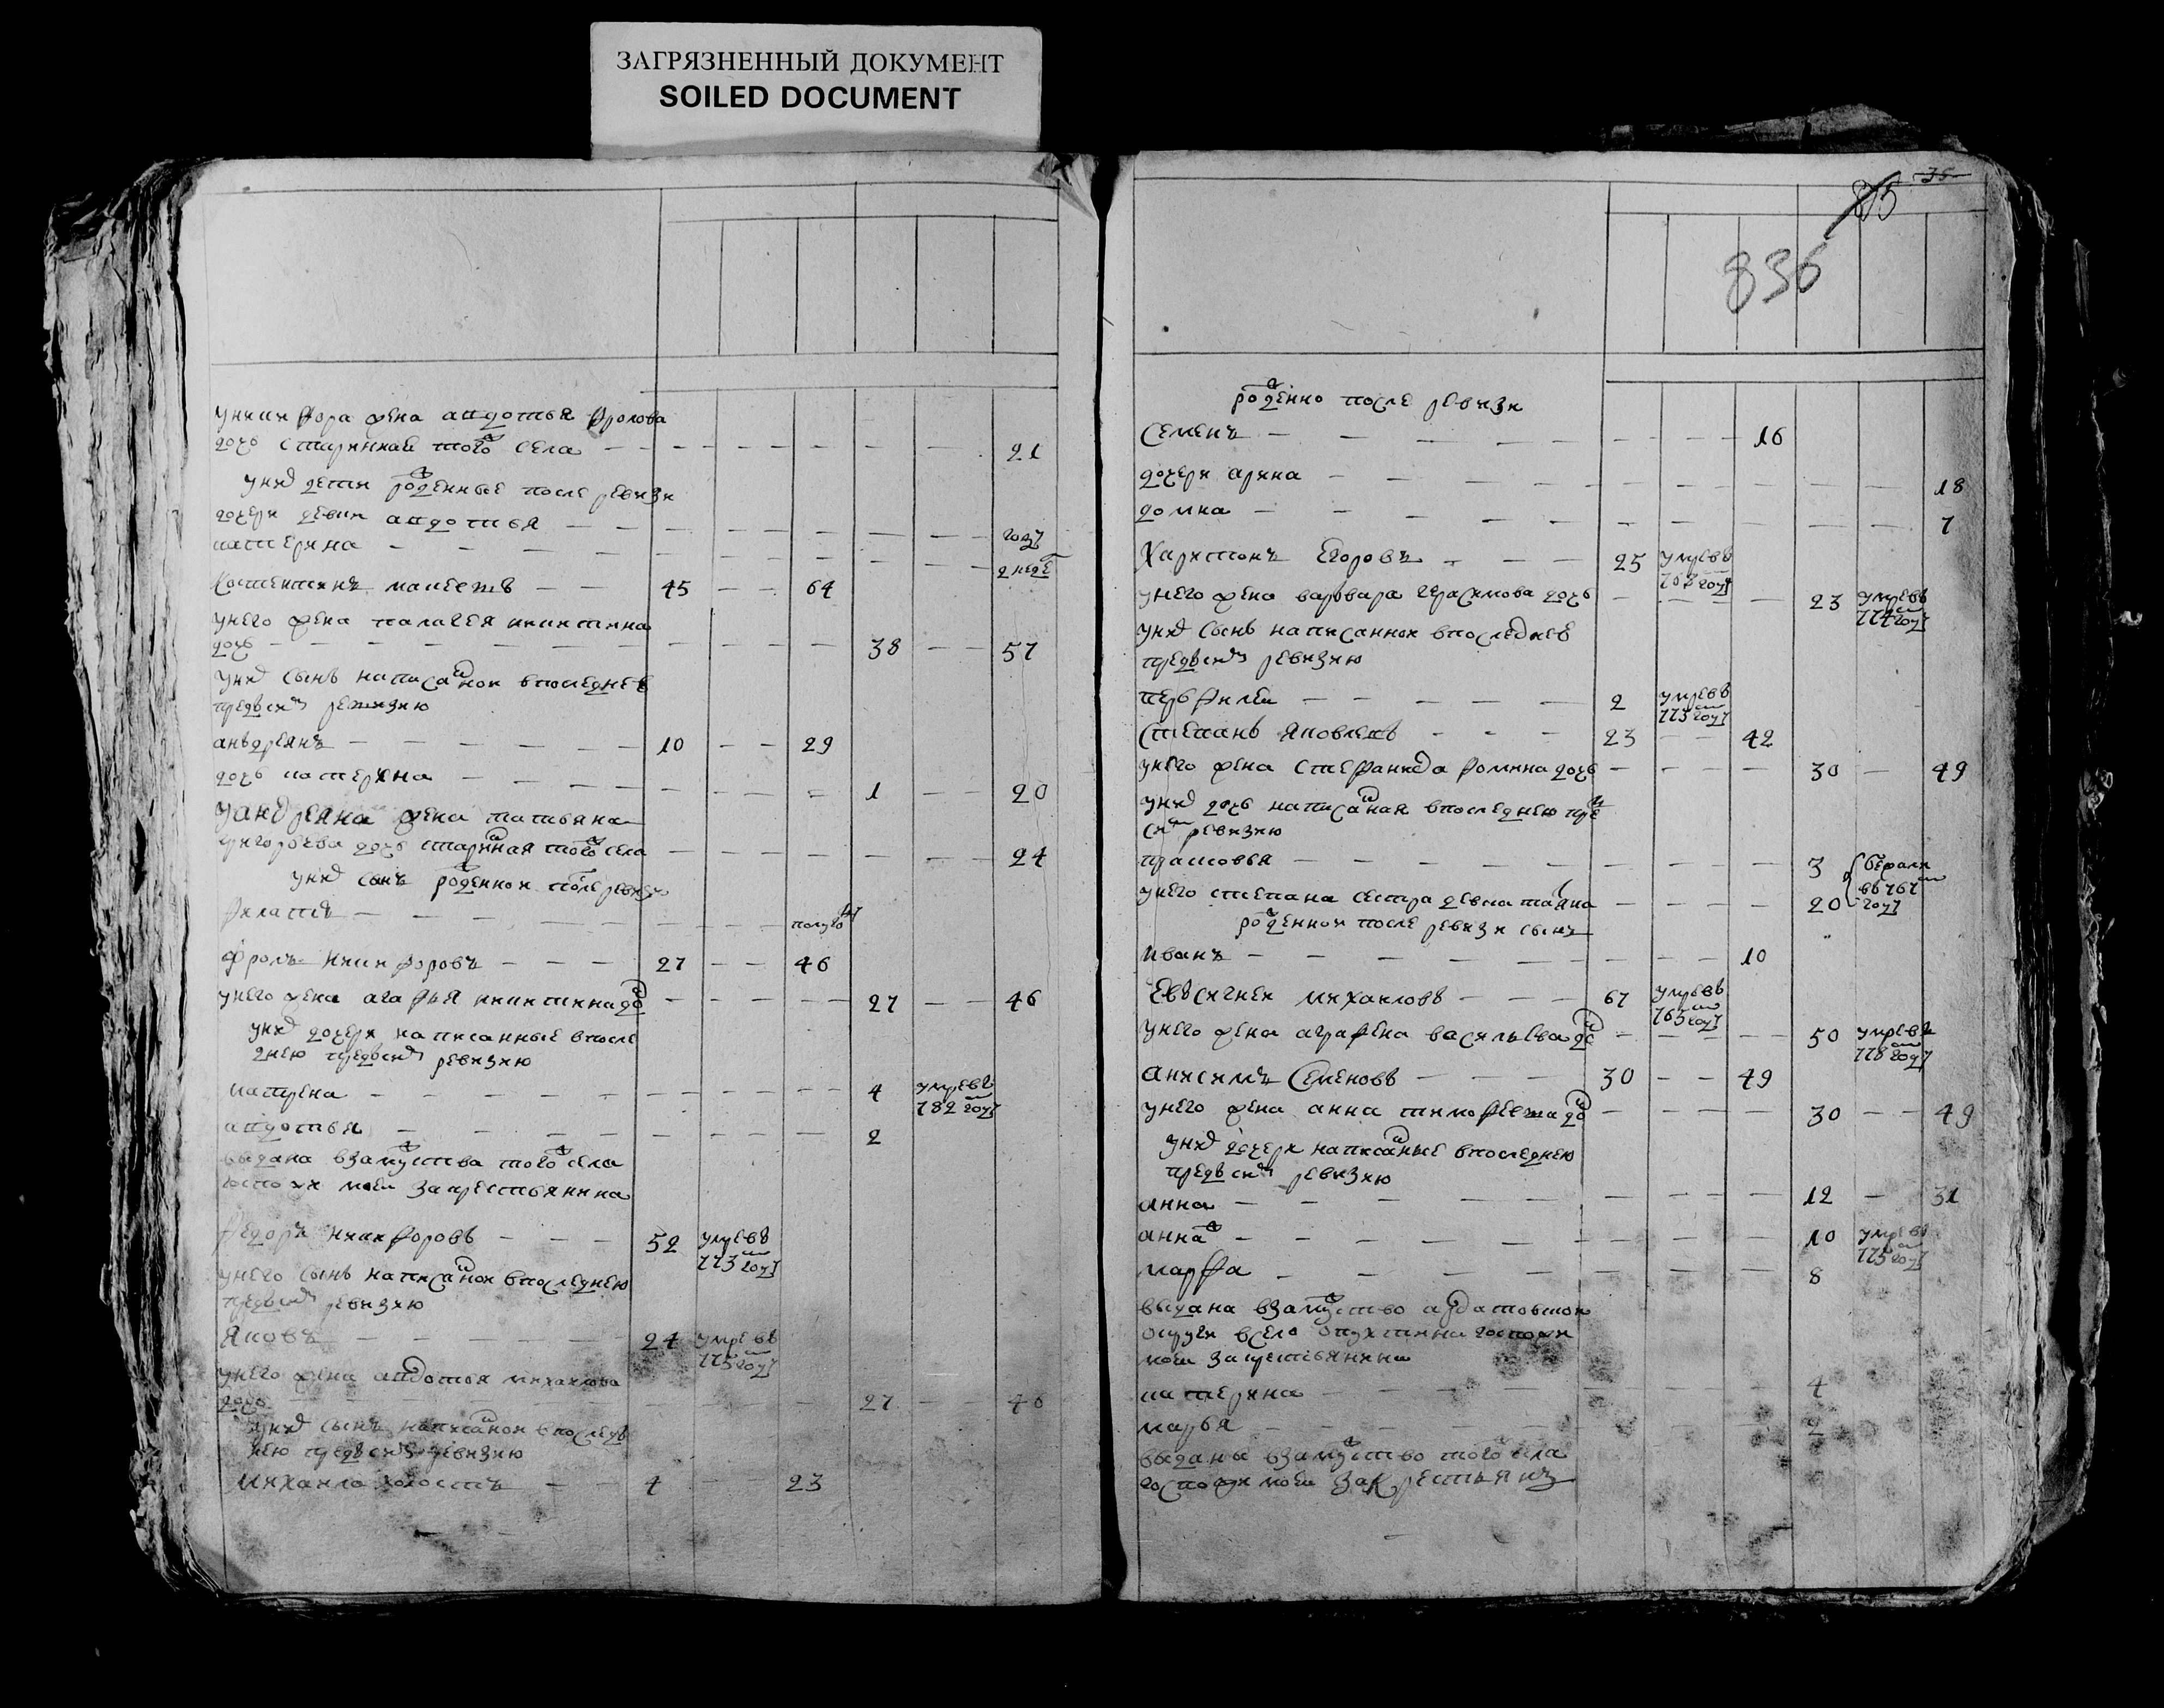 ЗАГРЯЗНЕННЫЙ ДОКУМЕНТ
SOILED DOCUMENT
у никифора жена авдотья фролова
дочь старинная того села — 21
у них дети рожденные после ревизи
дочери девки авдотья — году
катерина — 2 неде
Костентинъ макеевъ — 45 — 64
у него жена палагея никитина
дочь — 38 — 57
у них сынъ написанной в последнеѣ
пред сим ревизию
андреянъ — 10 — 29
дочь катерина — 1 — 20
у андреяна жена татьяна
григорьева дочь старинная того села — 24
у них сынъ рожденной после ревизи
филатъ — полуго
Фролъ Никифоровъ — 27 — 46
у него жена агафья никитина до — 27 — 46
у них дочери написанные в после
днею пред сим ревизию
катрена — 4 умре въ
782 году
авдотья — 2
выдана в замужства того села
госпожи моеи за крестьянина
Федоръ Никифоровъ — 52 умре въ
773 году
у него сынъ написанной в последнею
пред сим ревизию
Яковъ — 24 умре въ
775 году
у него жена авдотья михаилова
дочь — 27 — 46
у них сынъ написанной в послед
нею пред сим ревизию
Михаило холостъ — 4 — 23
35
835
836
рожденно после ревизи
Семенъ — 16
дочери арина — 18
домна — 7
Харитонъ Егоровъ — 25 умре въ
767 году
у него жена варвара герасимова дочь — 23 умре въ
774 году
у них сынъ написанной в последнеѣ
пред сим ревизию
перфилеи — 2 умре въ
773 году
Степанъ Яковлевъ — 23 — 42
у него жена стефанида фомина дочь — 30 — 49
у них дочь написаная в последнею пре
сим ревизию
прасковья — 3 бежали
въ 767
году
у него степана сестра девка таяна — 20
рожденной после ревизи сынъ
иванъ — 10
Евсигнеи михаиловъ — 67 умре въ
765 году
у него жена аграфена васильева до — 50 умре въ
778 году
Анисимъ Семеновъ — 30 — 49
у него жена анна тимофеева до — 30 — 49
у них дочери написаные в последнею
пред сим ревизию
анна — 12 — 31
анна ж — 10 умре въ
775 году
марфа — 8
выдана в замужство ардатовской
округи в село госпожи
моеи за крестьянина
катерина — 4
марья — 2
выданы в замужство того села
госпожи моеи за крестьянъ